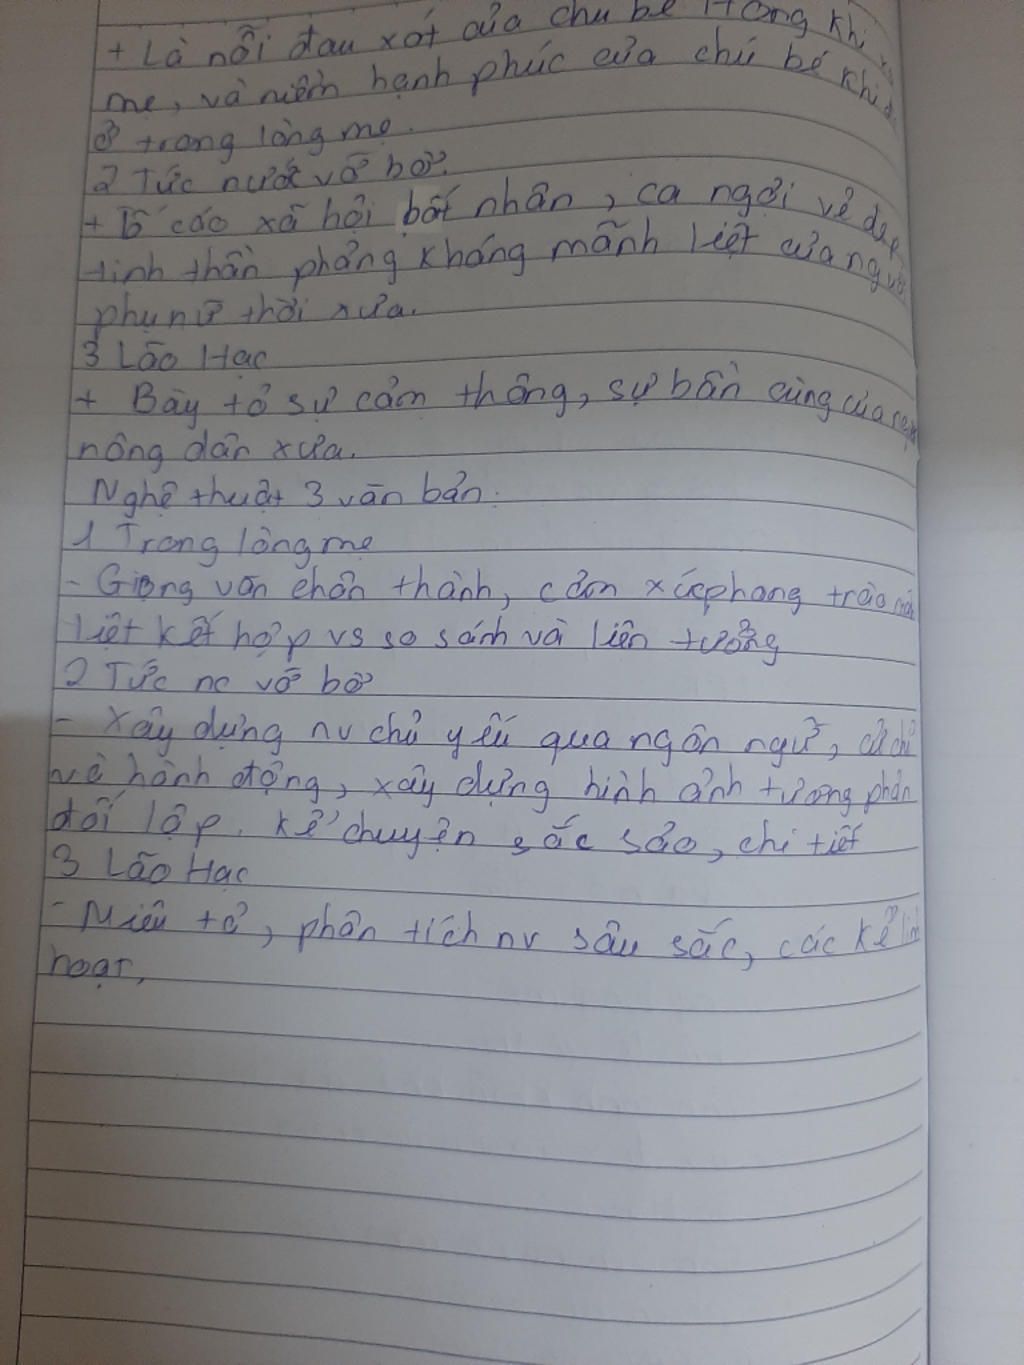 + Là nỗi đau xót của chú bé Hồng khi
mẹ, và niềm hạnh phúc của chú bé khi
ở trong lòng mẹ.
2 Tức nước vỡ bờ.
+ Tố cáo xã hội bất nhân, ca ngợi vẻ đẹp
tinh thần phảng kháng mãnh liệt của người
phụ nữ thời xưa.
3 Lão Hạc
+ Bày tỏ sự cảm thông, sự bần cùng của
nông dân xưa.
Nghệ thuật 3 văn bản.
1 Trong lòng mẹ
- Giọng văn chân thành, cảm xúc phong trào
liệt kết hợp vs so sánh và liên tưởng
2 Tức nc vỡ bờ
- Xây dựng nv chủ yếu qua ngôn ngữ, cử chỉ
và hành động, xây dựng hình ảnh tương phản
đối lập. Kể chuyện sắc sảo, chi tiết
3 Lão Hạc
- Miêu tả, phân tích nv sâu sắc, các kể linh
hoạt,